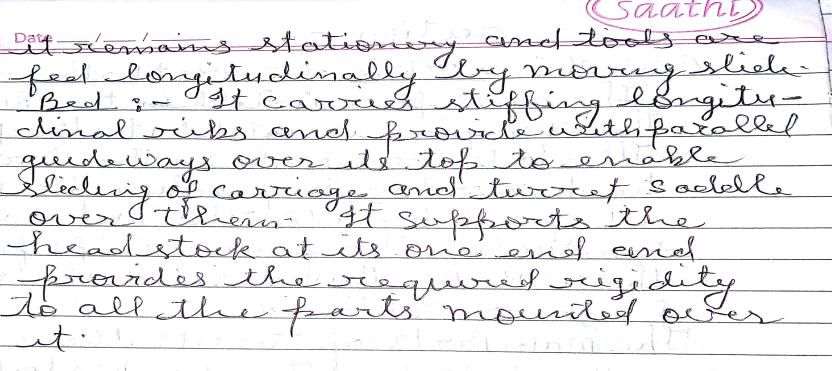 Saathi
Date __/__/__
it remains stationery and tools are
fed longitudinally by moving slide.
Bed :- It carries stiffing longitu-
dinal ribs and provide with parallel
guideways over its top to enable
sliding of carriage and turret saddle
over them. It supports the
headstock at its one end and
provides the required rigidity
to all the parts mounted over
it.